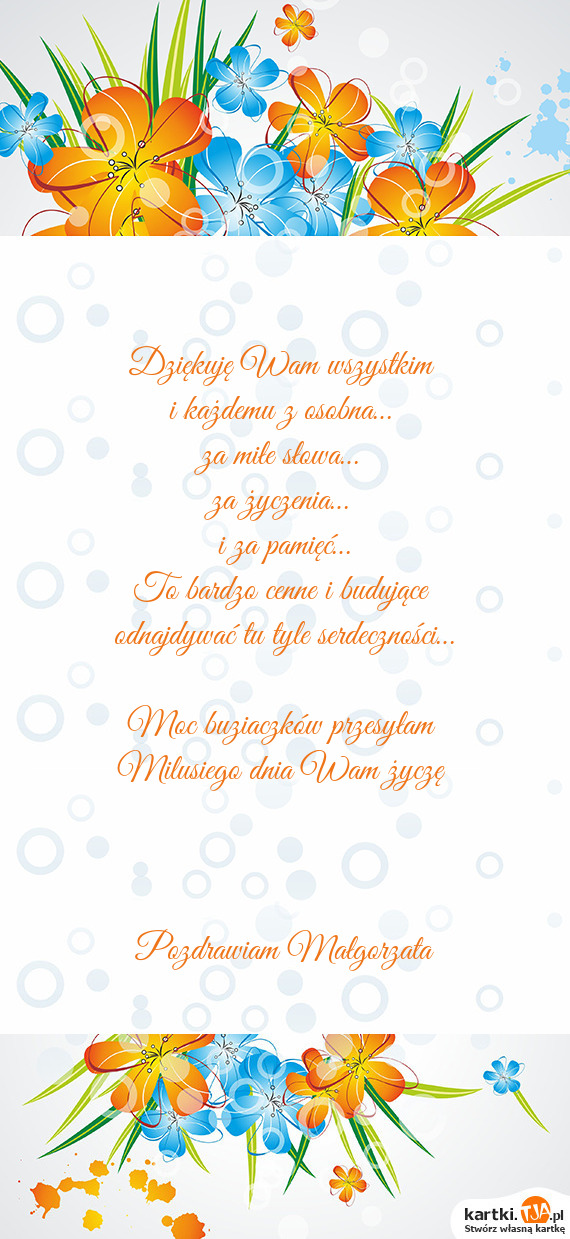 Dziękuję Wam wszystkim
i każdemu z osobna...
za miłe słowa...
za życzenia...
i za pamięć...
To bardzo cenne i budujące
odnajdywać tu tyle serdeczności...
Moc buziaczków przesyłam
Milusiego dnia Wam życzę
Pozdrawiam Małgorzata
kartki.TJA.pl
Stwórz własną kartkę